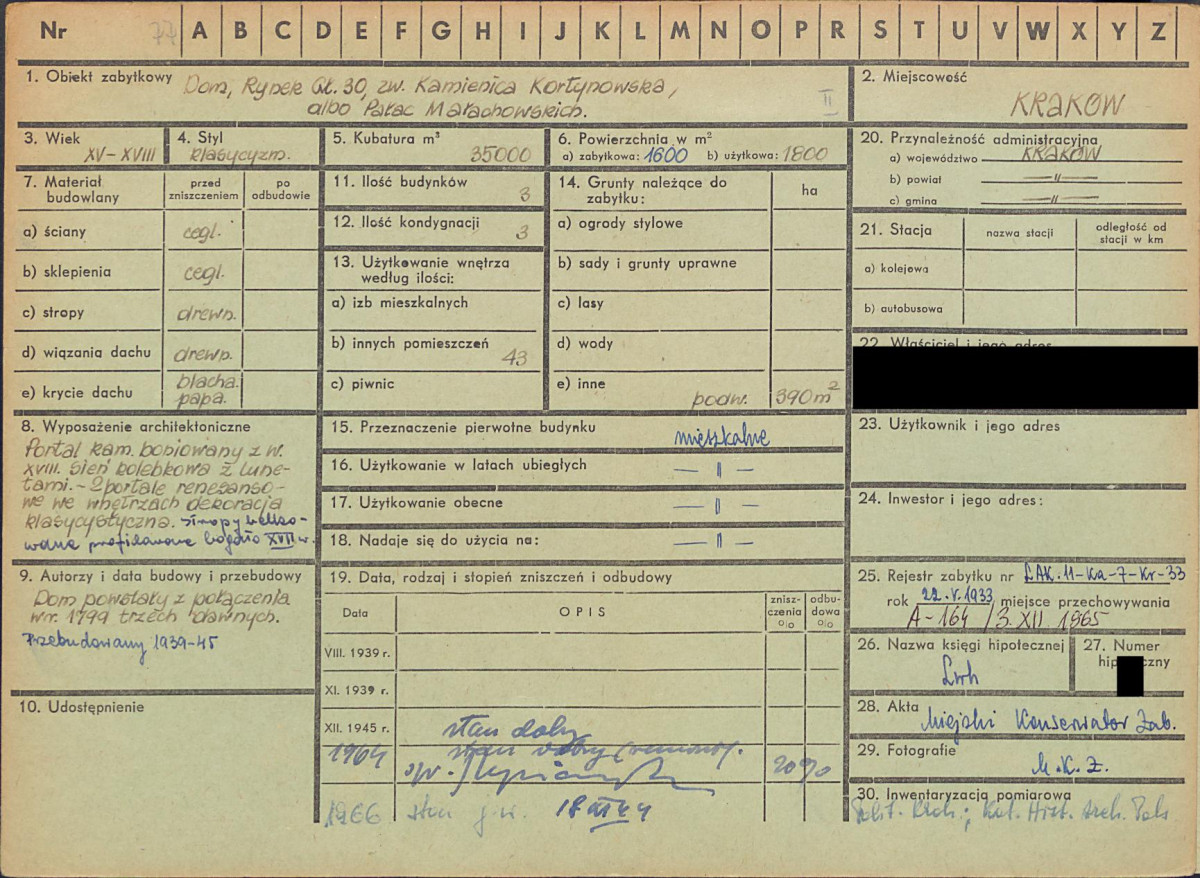 Nr 77 A B C D E F G H I J K L M N O P R S T U V W X Y Z
1. Obiekt zabytkowy Dom, Rynek Gł. 30, zw. Kamienica Kortynowska,
albo Pałac Małachowskich.
II
2. Miejscowość
KRAKÓW
3. Wiek
XV – XVIII
4. Styl
klasycyzm.
5. Kubatura m³
35000
6. Powierzchnia w m²
a) zabytkowa: 1600 b) użytkowa: 1800
20. Przynależność administracyjna
a) województwo KRAKÓW
b) powiat —"—
c) gmina —"—
7. Materiał budowlany
przed zniszczeniem
po odbudowie
a) ściany cegl.
b) sklepienia cegl.
c) stropy drewn.
d) wiązania dachu drewn.
e) krycie dachu blacha. papa.
11. Ilość budynków
3
12. Ilość kondygnacji
3
13. Użytkowanie wnętrza
według ilości:
a) izb mieszkalnych
b) innych pomieszczeń
43
c) piwnic
14. Grunty należące do
zabytku:
ha
a) ogrody stylowe
b) sady i grunty uprawne
c) lasy
d) wody
e) inne
podw. 390 m²
21. Stacja
nazwa stacji
odległość od
stacji w km
a) kolejowa
b) autobusowa
22. Właściciel i jego adres
8. Wyposażenie architektoniczne
Portal kam. boniowany z w.
XVIII. sień kolebkowa z lune-
tami. – 2 portale renesanso-
we we wnętrzach dekoracja
klasycystyczna. stropy belko-
wane profilowane bogato XVII w.
15. Przeznaczenie pierwotne budynku mieszkalne
16. Użytkowanie w latach ubiegłych — " —
17. Użytkowanie obecne — " —
18. Nadaje się do użycia na: — " —
23. Użytkownik i jego adres
24. Inwestor i jego adres:
9. Autorzy i data budowy i przebudowy
Dom powstały z połączenia
w r. 1799 trzech dawnych.
Przebudowany 1939-45
10. Udostępnienie
19. Data, rodzaj i stopień zniszczeń i odbudowy
Data
OPIS
znisz-
czenia
%
odbu-
dowa
%
VIII. 1939 r.
XI. 1939 r.
XII. 1945 r. stan dobry
1964 stan dobry (remont).
20%
1966 stan j.w.
25. Rejestr zabytku nr ŁAK.11-Ka-7-Kr-33
rok 22.V.1933 miejsce przechowywania
A-164 / 3.XII.1965
26. Nazwa księgi hipotecznej
Lwh
27. Numer
hip czny
28. Akta Miejski Konserwator Zab.
29. Fotografie
M.K.Z.
30. Inwentaryzacja pomiarowa